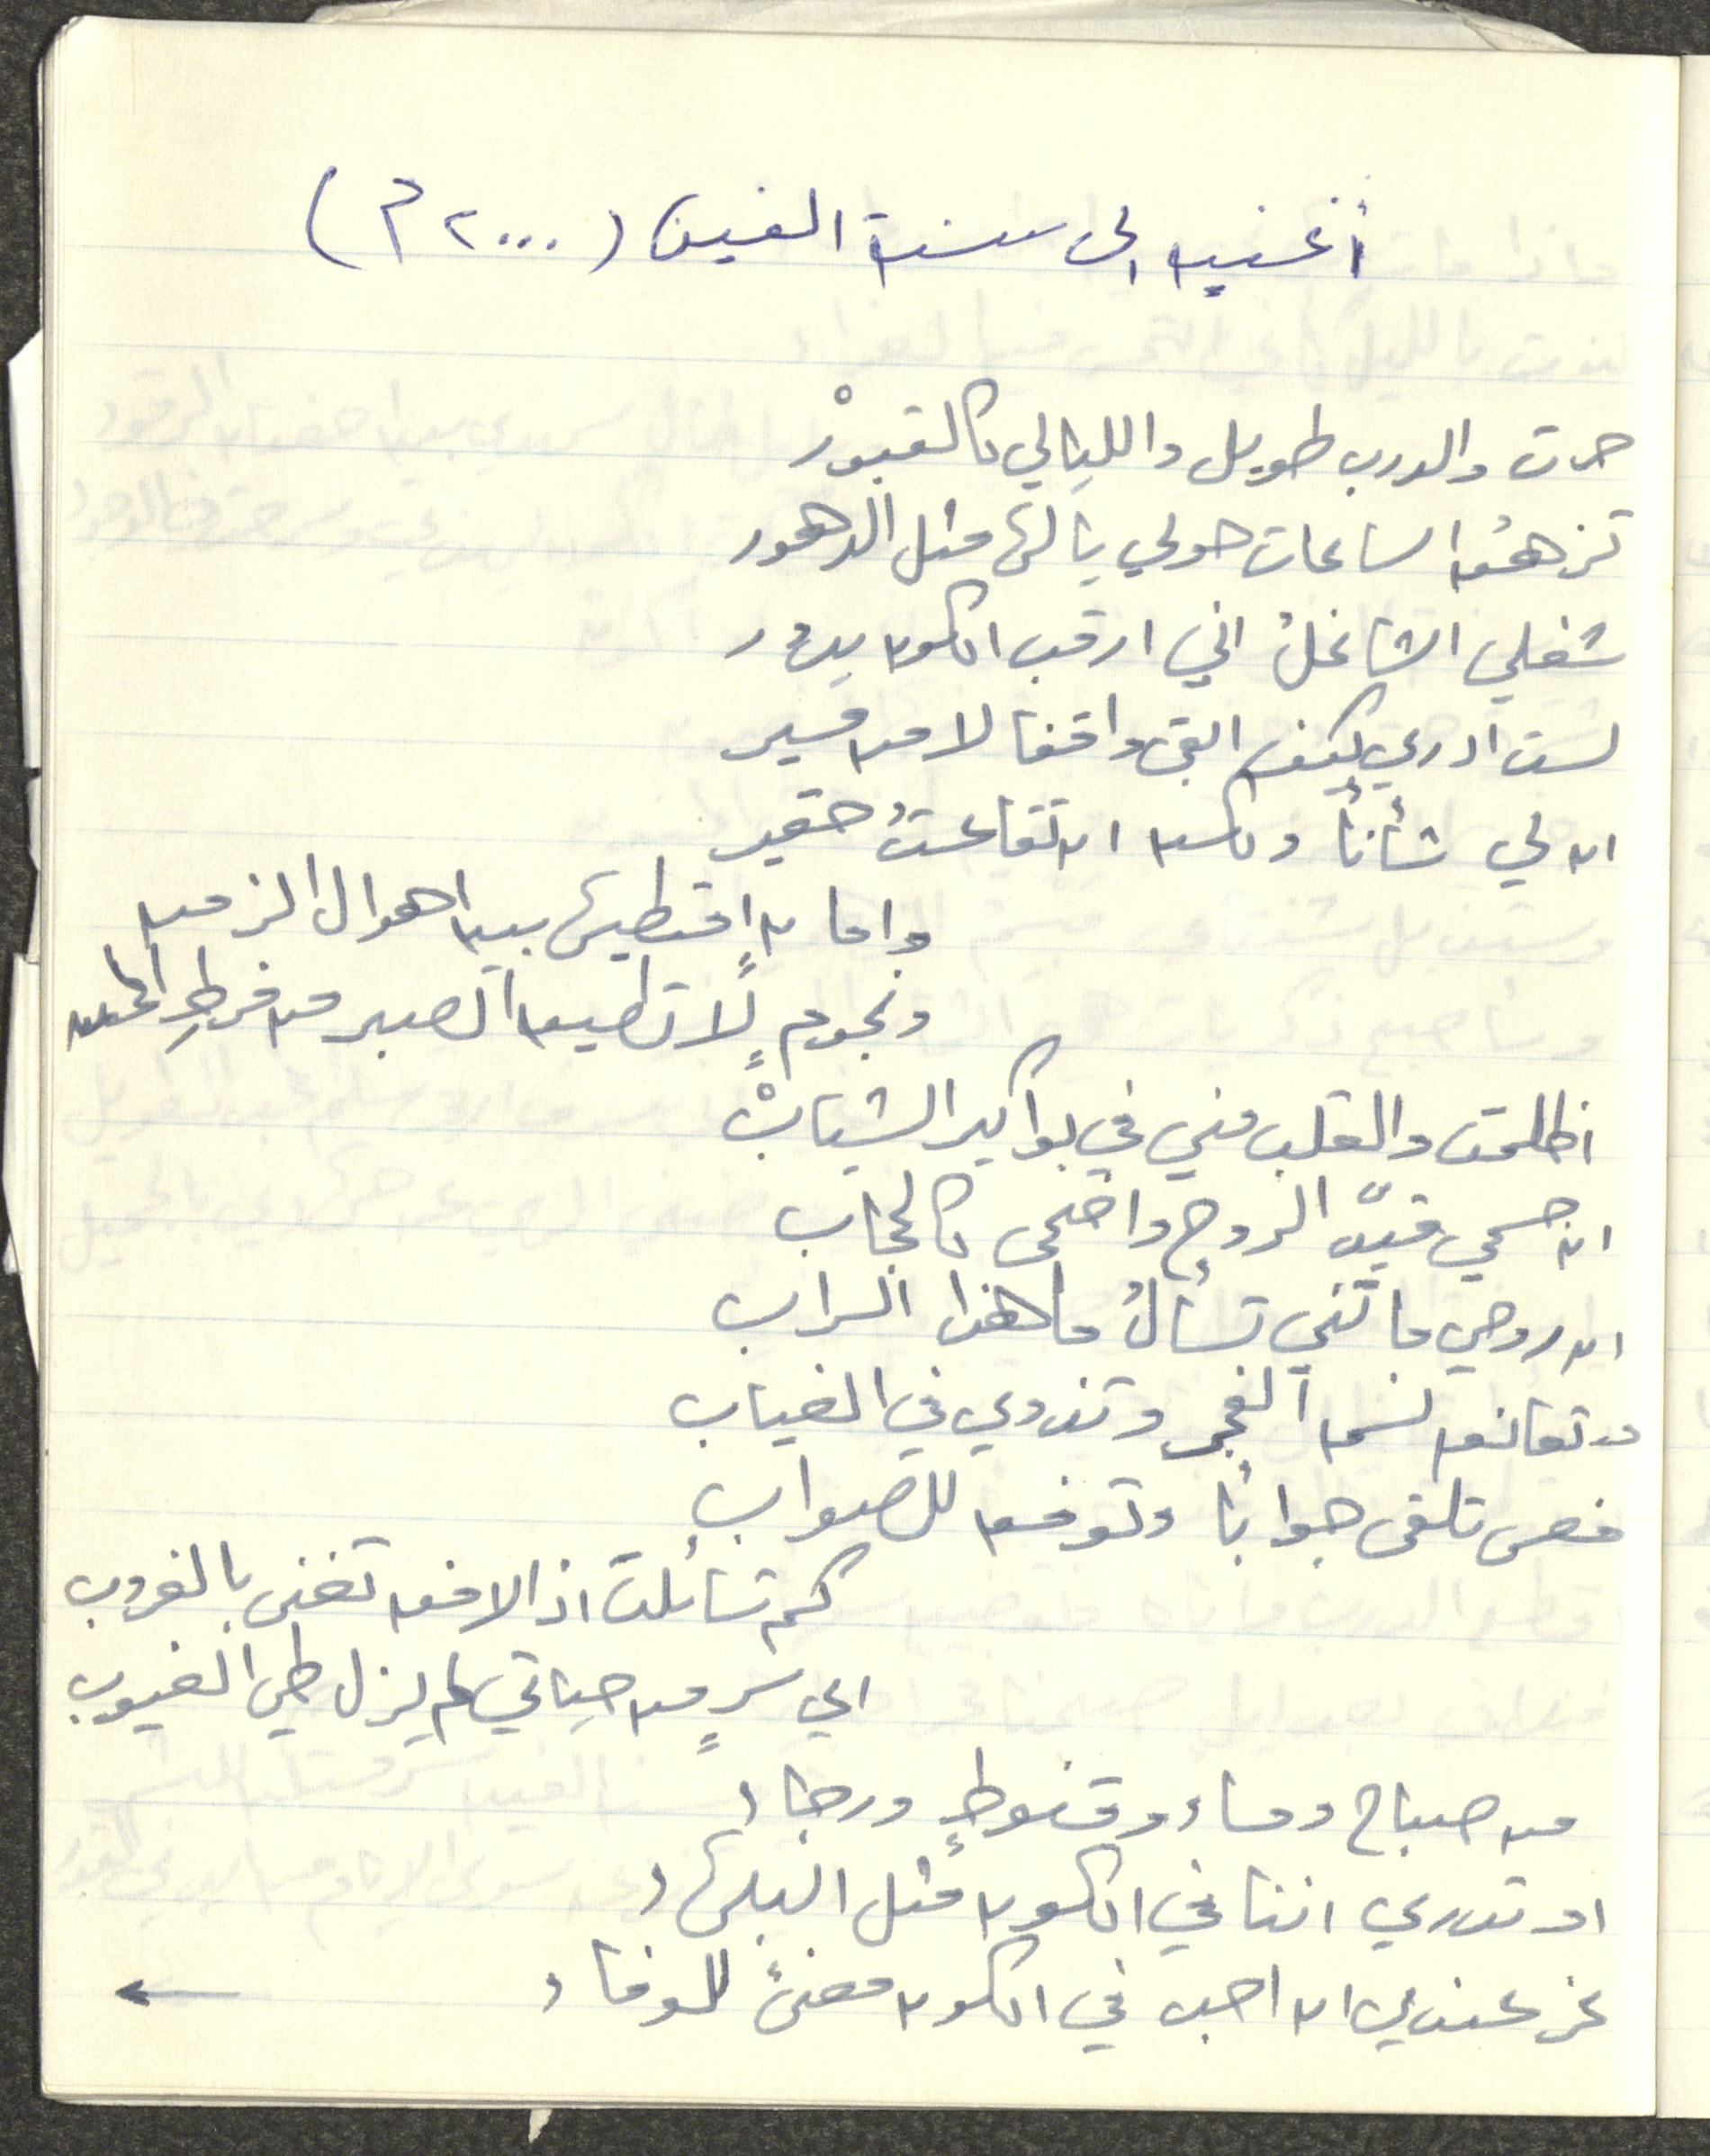 أغنيه الى سنة الفين (٢٠٠٠ م)
حرت والدرب طويل والليالي كالقبورْ
تزهقُ الساعات حولي يالها مثل الدهور
شغلي الشاغلُ اني ارقب الكون يدور
لست ادري كيف ابقى واقفا لا من مسير
ان لي شأناً ولكن ان تقاعستُ حقير
واما نٍ امتطيها بين اهوال الزمن
ونجومٍ لا تطيق الصبر من فرطِ المحن
اظلمت والقلب مني في بواكير الشبابْ
ان جسمي قيّد الروح واضحى كالحجاب
ان روحي ما تني تسألُ ما هذا السراب
من تعانق نسمة الفجر وتدوي في الغياب
فعسى تلقى جواباً وتوفق للصواب
كم تسائلت اذ الافق تغنى بالغروب
اي سرٍ من حياتي لم يزل طي الغيوب
من صباح ومساء وقنوطٍ ورجاء
او تدري اننا في الكون مثل البلهاء
عز عندي ان احب في الكون معنىً للوفاء
←